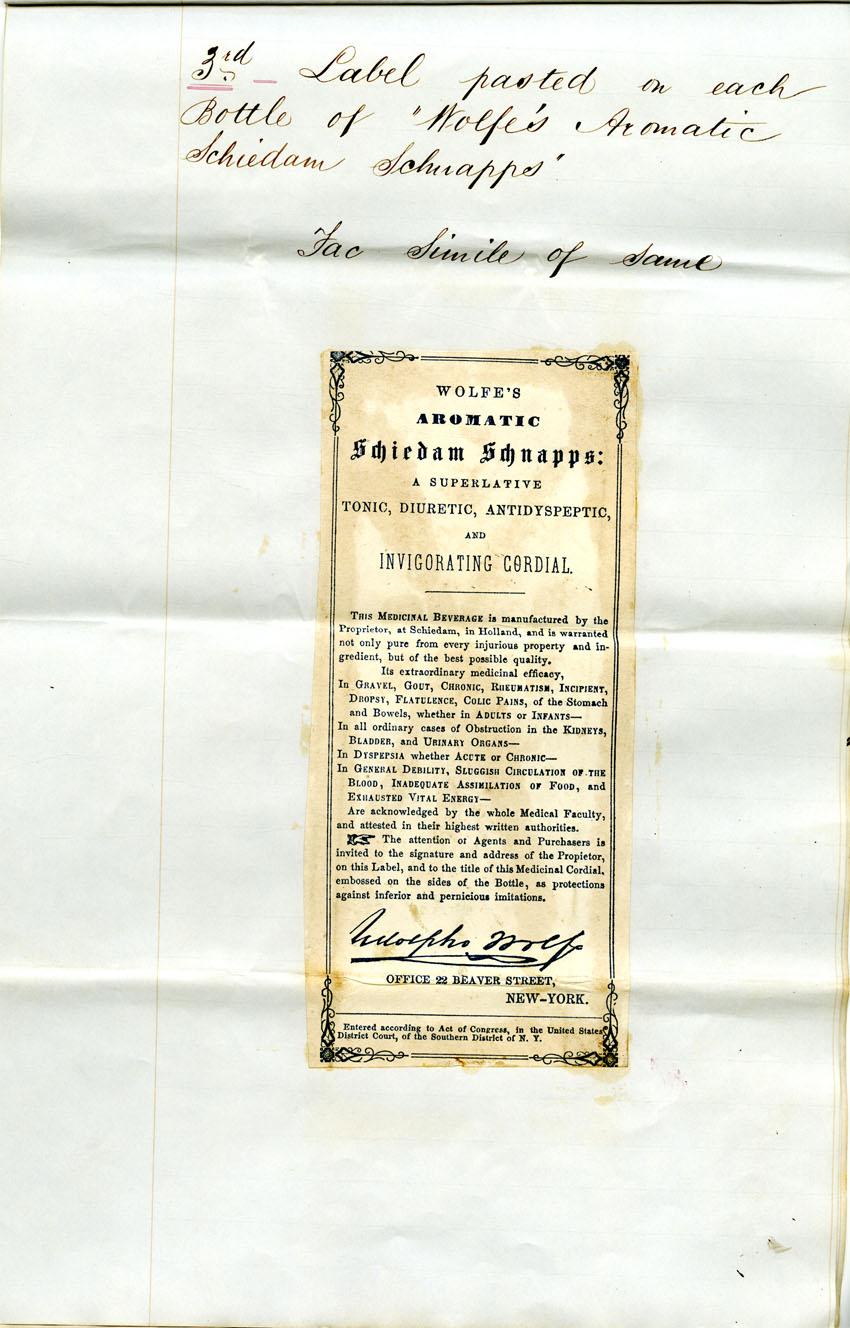 3rd - Label pasted on each
Bottle of "Wolfe's Aromatic
Schiedam Schnapps"
Fac Simile of Same
WOLFE'S
AROMATIC
Schiedam Schnapps:
A SUPERLATIVE
TONIC, DIURETIC, ANTIDYSPEPTIC,
AND
INVIGORATING CORDIAL.
THIS MEDICINAL BEVERAGE is manufactured by the
Proprietor, at Schiedam, in Holland, and is warranted
not only pure from every injurious property and in-
gredient, but of the best possible quality.
Its extraordinary medicinal efficacy,
In GRAVEL, GOUT, CHRONIC, RHEUMATISM, INCIPIENT,
DROPSY, FLATULENCE, COLIC PAINS, of the Stomach
and Bowels, whether in ADULTS or INFANTS—
In all ordinary cases of Obstruction in the KIDNEYS,
BLADDER, and URINARY ORGANS—
In DYSPEPSIA whether ACUTE or CHRONIC—
In GENERAL DEBILITY, SLUGGISH CIRCULATION OF THE
BLOOD, INADEQUATE ASSIMILATION OF FOOD, and
EXHAUSTED VITAL ENERGY—
Are acknowledged by the whole Medical Faculty,
and attested in their highest written authorities.
☞ The attention of Agents and Purchasers is
invited to the signature and address of the Propietor,
on this Label, and to the title of this Medicinal Cordial,
embossed on the sides of the Bottle, as protections
against inferior and pernicious imitations.
Udolpho Wolfe
OFFICE 22 BEAVER STREET,
NEW-YORK.
Entered according to Act of Congress, in the United States
District Court, of the Southern District of N. Y.